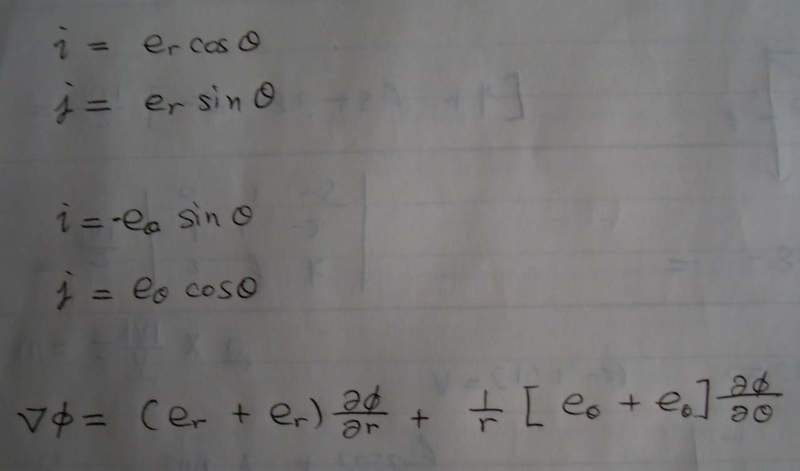 i = e_r cos θ
j = e_r sin θ
i = -e_θ sin θ
j = e_θ cos θ
∇ϕ = (e_r + e_r) ∂ϕ/∂r + 1/r [e_θ + e_θ] ∂ϕ/∂θ